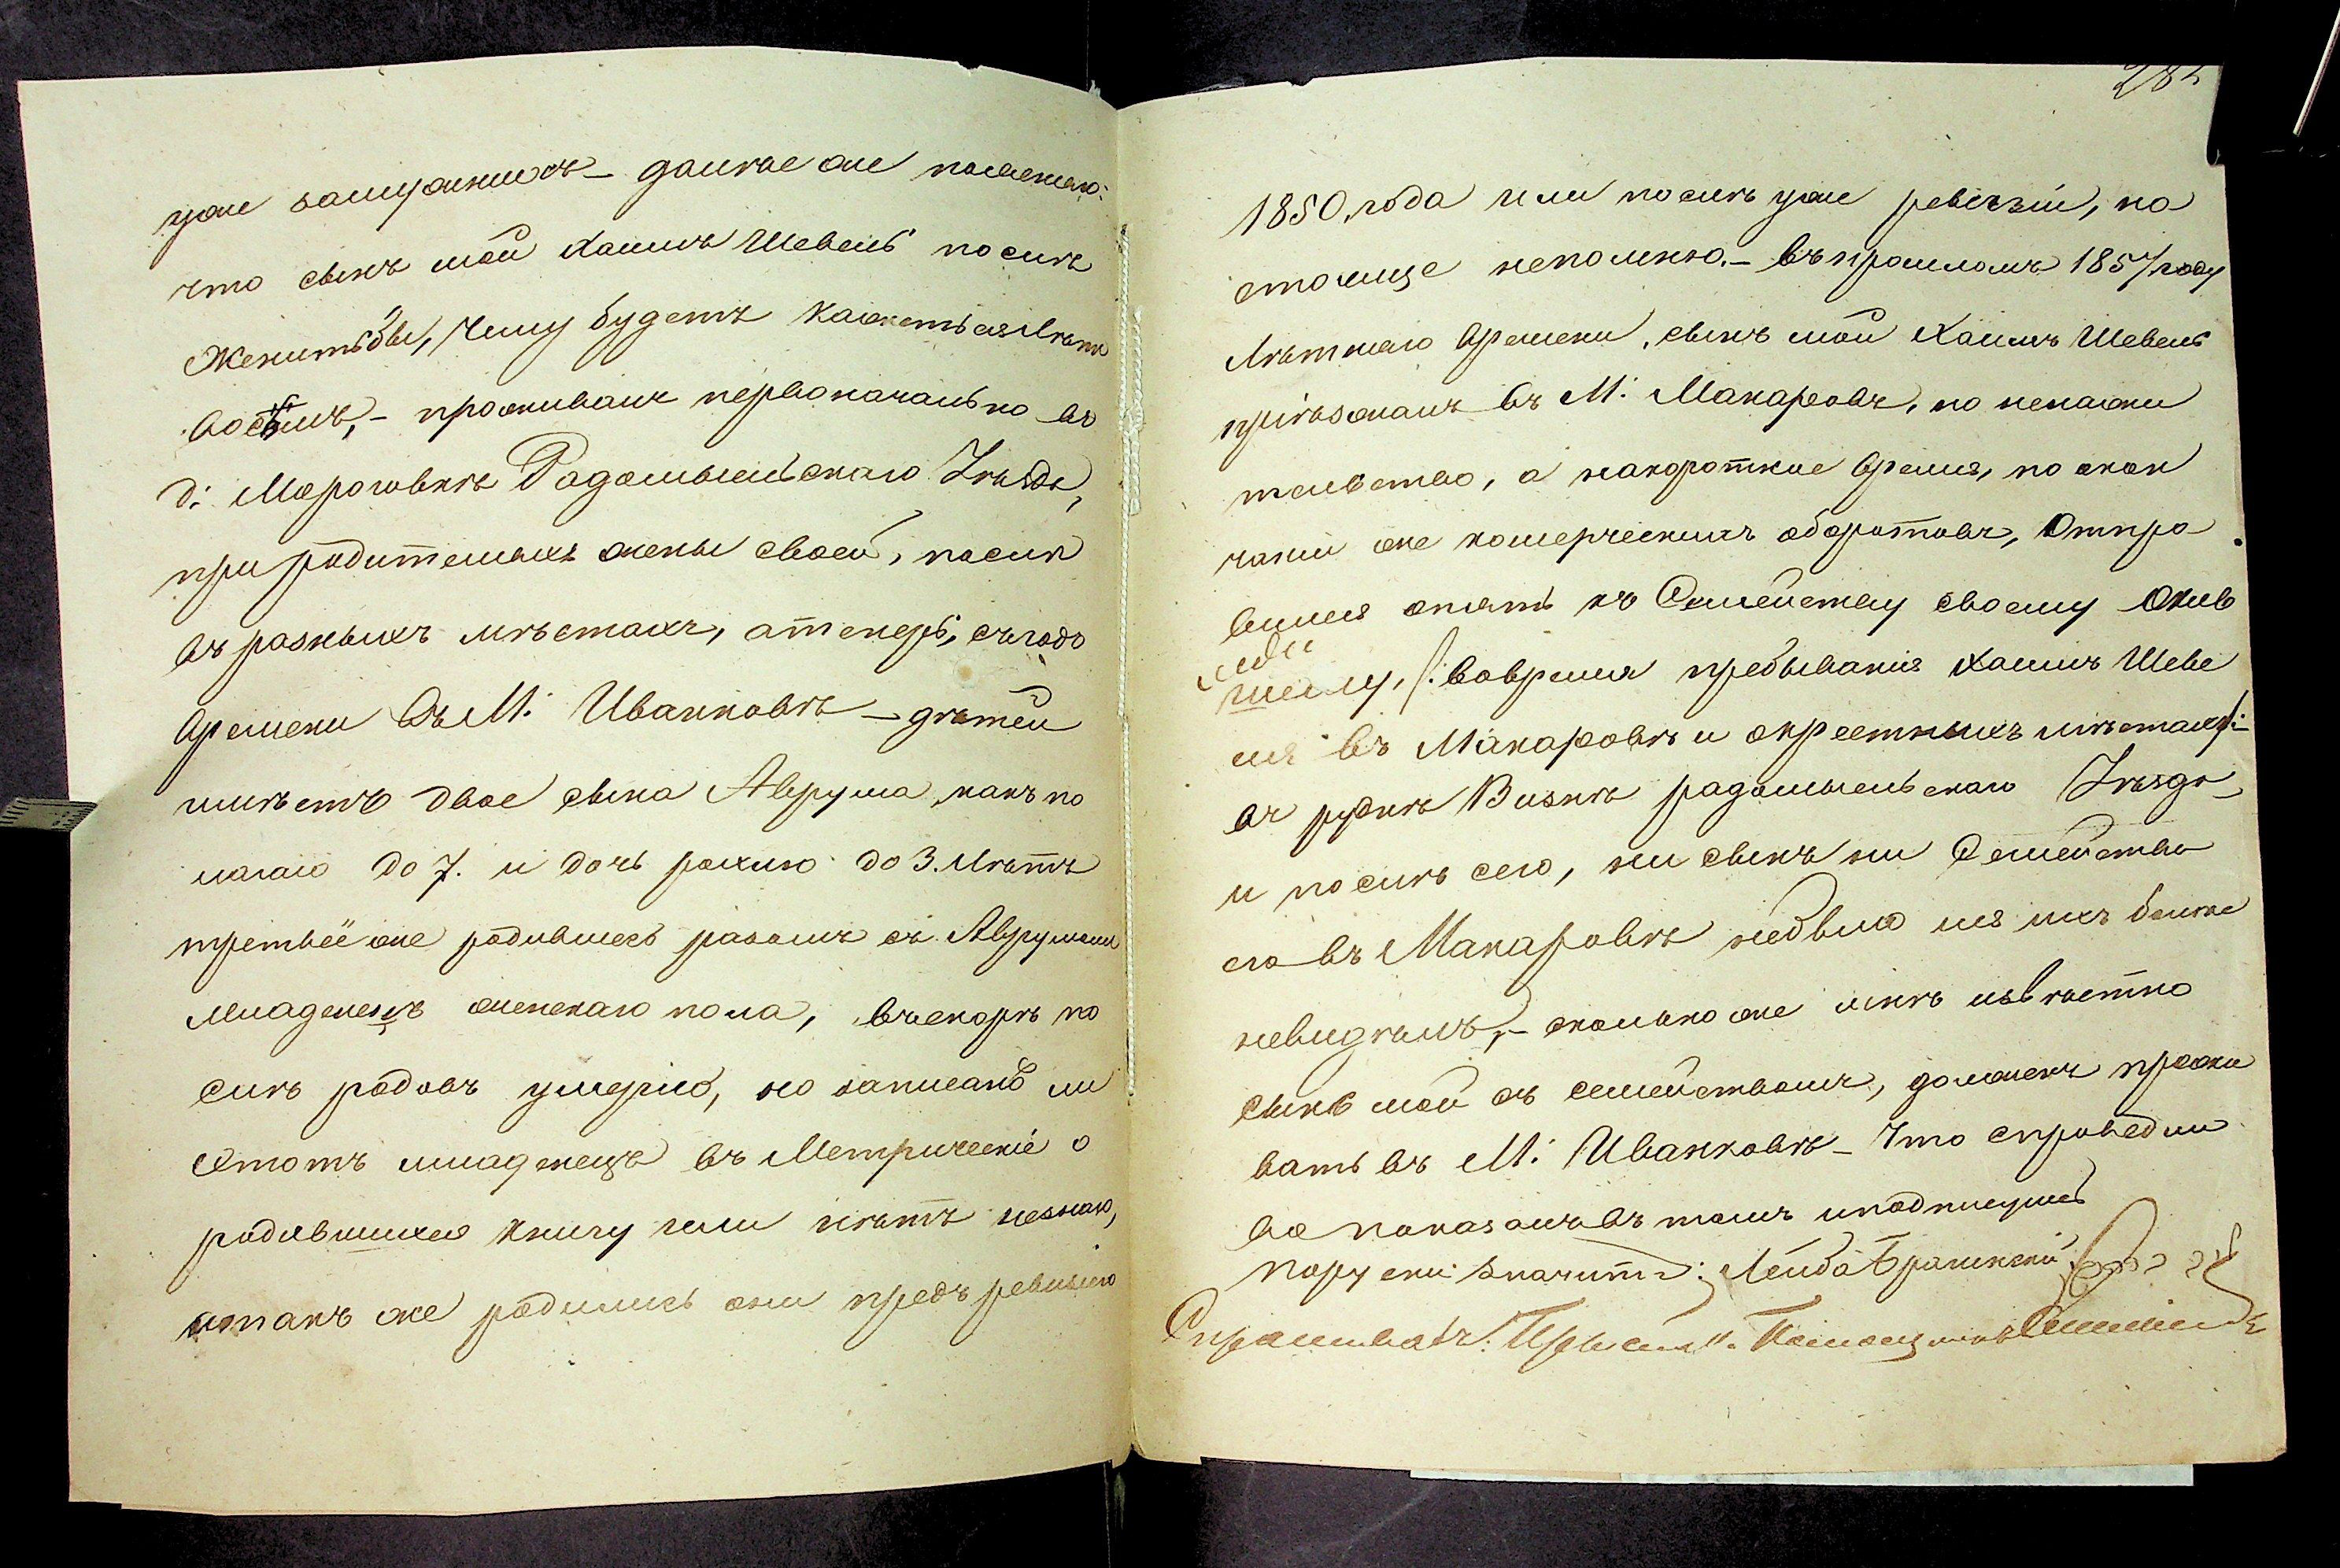 уже замужнюю – далѣе же полагаю:
что сынъ мой Хаимъ Шевель послѣ
Женитьбы, чему будетъ кажеться лѣтъ
восемъ, – проживалъ первоначально въ
д: Мороговкѣ Радомысльскаго Уѣзда,
при родителяхъ жены своей, послѣ
въ разныхъ мѣстахъ, а теперь, съ годъ
времени въ М: Иванковѣ – дѣтей
имѣетъ двое сына Аврума, какъ по
лагаю до 7. и дочь рохлю до 3. лѣтъ
третьеё же родившесь разомъ съ Аврумомъ
младенецъ женскаго пола, въскорѣ по
слѣ родовъ умерло, но записанъ ли
Этотъ младенецъ въ Метрическіе о
родившихся книгу или нѣтъ незнаю,
итакъ же родились они предъ ревизіею
282
1850 года или послѣ уже ревизіи, на
стояще непомню. – въ прошломъ 1857 году
лѣтнаго времени, сынъ мой Хаимъ Шевель
пріѣзжалъ въ М: Макаровъ, но не на жи
тельство, а накороткое время, по окон
чаніи же комерческихъ оборотовъ, Отпра
вился опять къ Семейству своему Жив
шему, /: вовремя пребыванія Хаимъ Шеве
ля въ Макаровѣ и окрестныхъ мѣстахъ /:
въ рудкѣ Визнѣ радомысльскаго Уѣзда –
и послѣ сего, ни сынъ ни Семейство
его въ Макаровѣ небыло и я ихъ болѣе
невидѣлъ, – сколько же мнѣ извѣстно
сынъ мой съ семействомъ, долженъ прожи
вать въ М: Иванковѣ – Что справедли
во показалъ въ томъ и подпишусь
по руски значитъ: Лейба Брагинскій
Спрашивалъ: Помощникъ